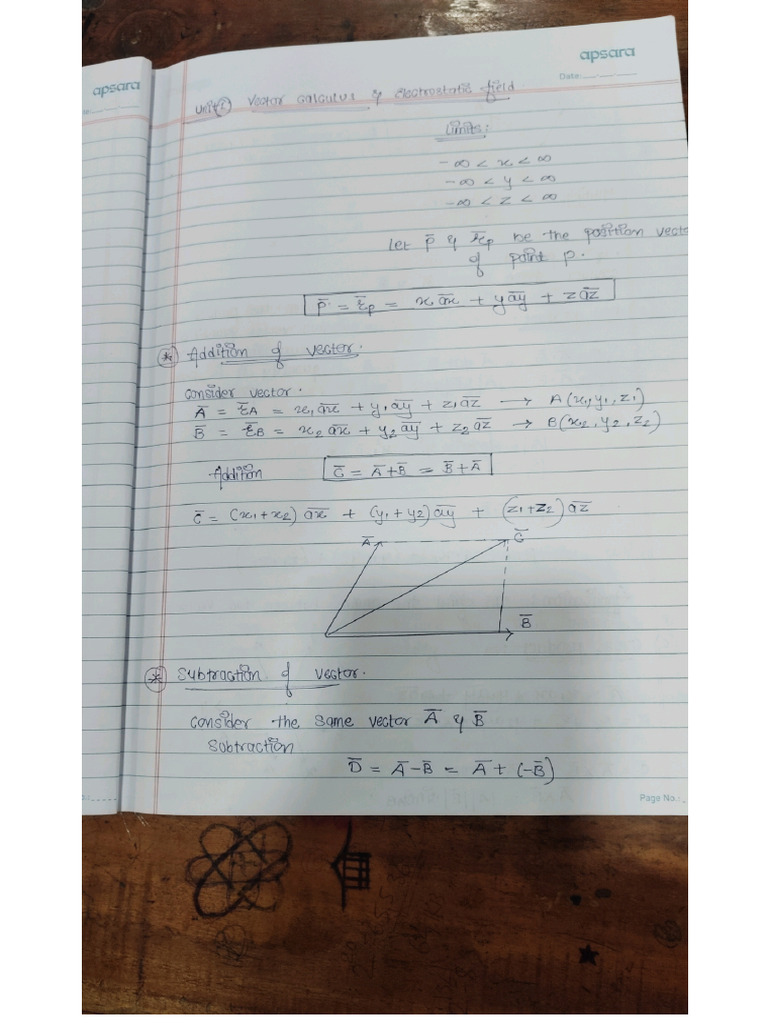 apsara
apsara
Date:
Unit① Vector Calculus & Electrostatic field
Limits:
-∞ < x < ∞
-∞ < y < ∞
-∞ < z < ∞
Let P̄ & r̄p be the position vecto
of point p.
P̄ = r̄p = x āx + y āy + z āz
* Addition of vector.
Consider vector.
Ā = r̄A = x₁ āx + y₁ āy + z₁ āz → A(x₁, y₁, z₁)
B̄ = r̄B = x₂ āx + y₂ āy + z₂ āz → B(x₂, y₂, z₂)
Addition C̄ = Ā + B̄ = B̄ + Ā
C̄ = (x₁ + x₂) āx + (y₁ + y₂) āy + (z₁ + z₂) āz
Ā C̄
B̄
* Subtraction of vector.
Consider the same vector Ā & B̄
Subtraction
D̄ = Ā - B̄ = Ā + (-B̄)
Page No.: